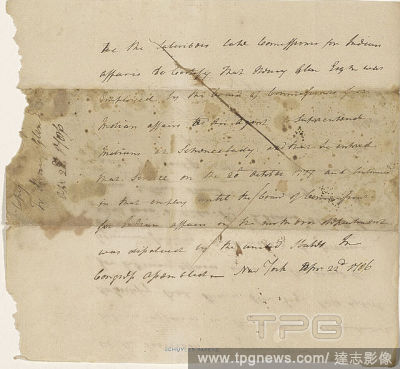 We the Subscribers late Commissioners for Indian
affairs do Certify that Henry Glen Esqr. was
employed by the board of Commissioners for
Indian affairs as an Agent to Superintend
Indians at Schenectady and that he entered
that Service on the 20th October 1779 and continued
in that employ until the board of Commissioners
for Indian affairs of the northern department
was dissolved by the united States In
Congress Assembled New York Apr. 22d 1786
Henry Glen
Apr 22d 1786
SCHUY
TPG
www.tpgnews.com / 達志影像